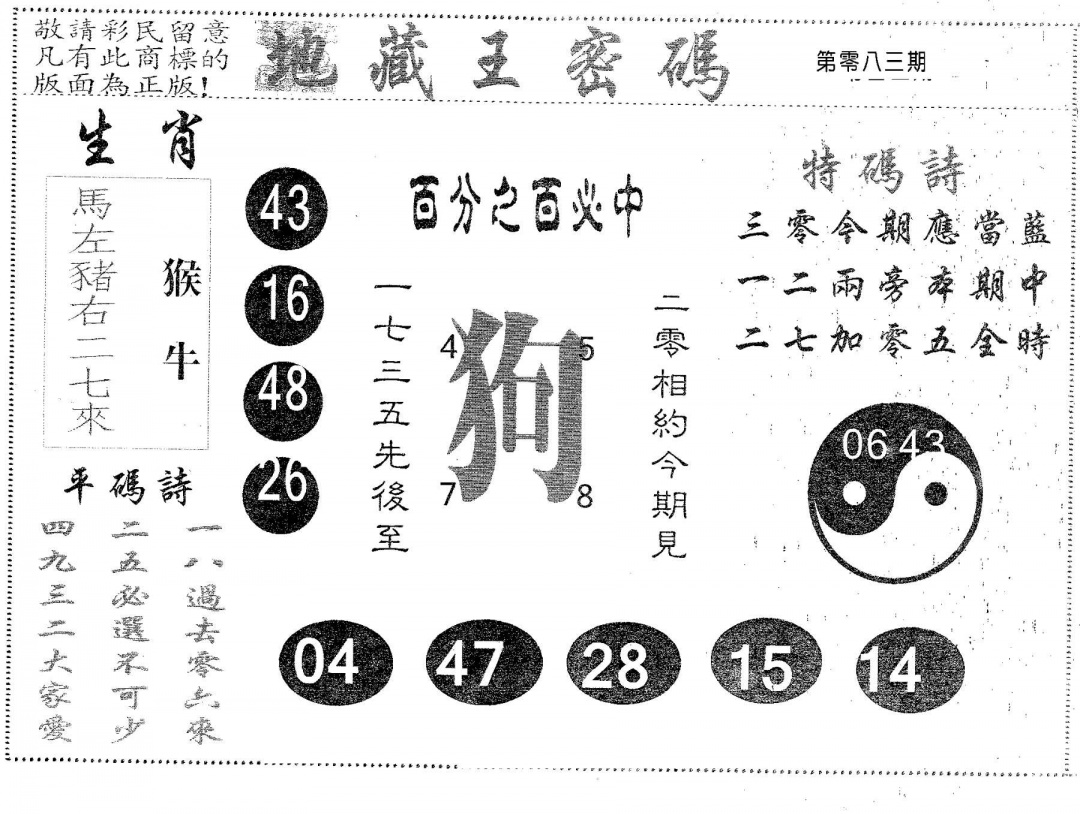 敬請彩民留意
凡有此商標的
版面為正版!
地藏王密碼
第零八三期
生肖
馬左豬右二七來
猴牛
43
16
48
26
百分之百必中
一七三五先後至
狗
4
5
7
8
二零相約今期見
特碼詩
三零今期應當藍
一二兩旁本期中
二七加零五全時
06 43
平碼詩
一八過去零六來
二五必選不可少
四九三二大家愛
04
47
28
15
14